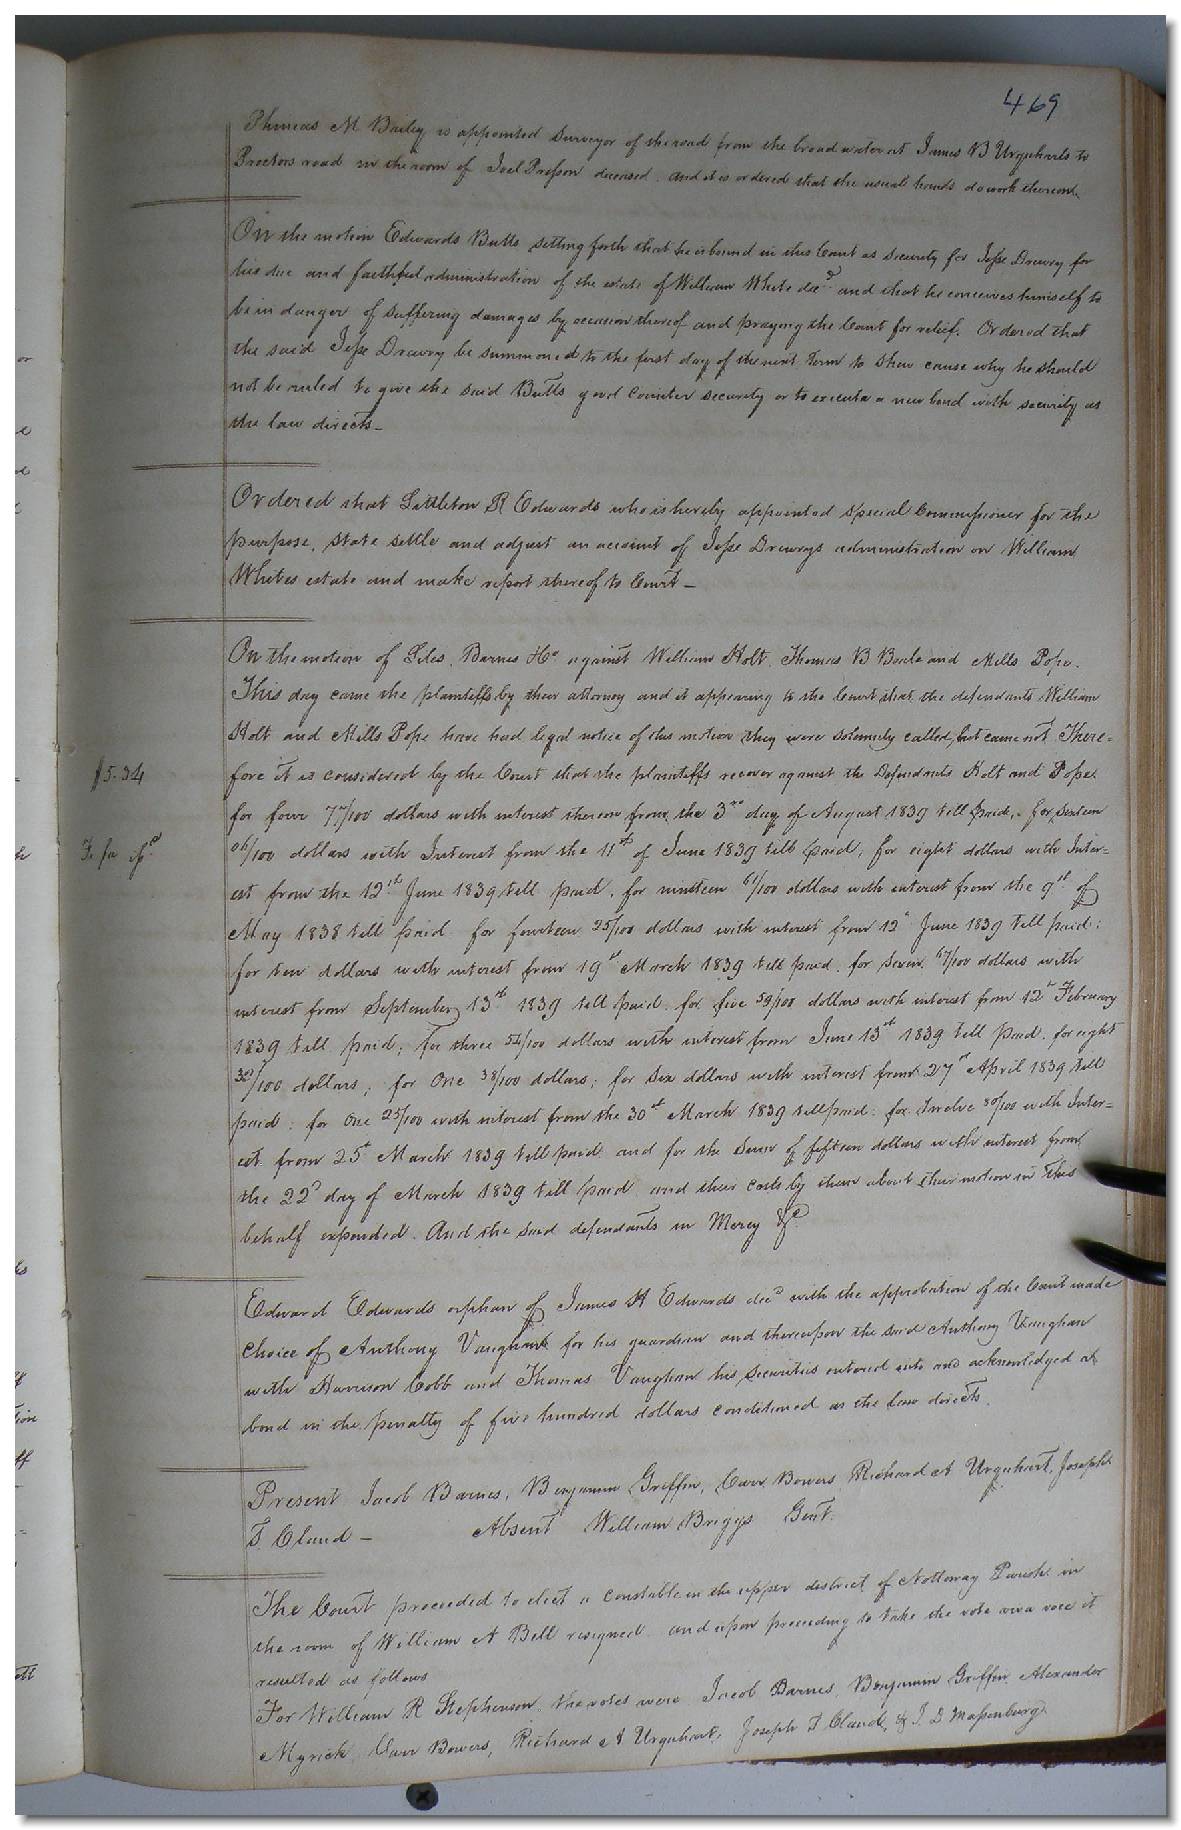 469
Phineas M Bailey is appointed Surveyor of the road from the broad water at James B Urquharts to
Proctors road in the room of Joel Presson deceased. and it is ordered that the usual hands do work thereon.
On the motion Edwards Butts setting forth that he is bound in this Court as security for Jesse Drewry for
his due and faithful administration of the estate of William White decd and that he conceives himself to
be in danger of suffering damages by occasion thereof and praying the Court for relief. Ordered that
the said Jesse Drewry be summoned to the first day of the next Term to shew cause why he should
not be ruled to give the said Butts good Counter security or to execute a new bond with security as
the law directs_
Ordered that Littleton R Edwards who is hereby appointed special Commissioner for the
purpose, state settle and adjust an account of Jesse Drewrys administration on William
Whites estate and make report thereof to Court_
On the motion of Giles, Barnes &Co against William Holt, Thomas B Beale and Mills Pope.
This day came the plaintiffs by their attorney and it appearing to the Court that the defendants William
Holt and Mills Pope have had legal notice of this motion they were solemnly called, but came not There=
$5.34
fore it is considered by the Court that the plaintiffs recover against the Defendants Holt and Pope
for four 77/100 dollars with interest thereon from the 3rd day of August 1839 till paid, for sixteen
Fi fa isd
06/100 dollars with Interest from the 11th of June 1839 till paid, for eight dollars with Inter=
est from the 12th June 1839 till paid, for nineteen 61/100 dollars with interest from the 9th of
May 1838 till paid for fourteen 25/100 dollars with interest from 12th June 1839 till paid;
for ten dollars with interest from 19th March 1839 till paid. for seven 67/100 dollars with
interest from September 13th 1839 till paid. for five 59/100 dollars with interest from 12th February
1839 till paid; for three 54/100 dollars with interest from June 13th 1839 till paid. for eight
32/100 dollars; for One 38/100 dollars; for six dollars with interest from 27th April 1839 till
paid; for One 25/100 with interest from the 30th March 1839 till paid; for Twelve 80/100 with Inter=
est from 25th March 1839 till paid and for the sum of fifteen dollars with interest from
the 22d day of March 1839 till paid and their costs by them about their motion in this
behalf expended. And the said defendants in Mercy &c
Edward Edwards orphan of James H Edwards decd with the approbation of the Court made
choice of Anthony Vaughan for his guardian and thereupon the said Anthony Vaughan
with Harrison Cobb and Thomas Vaughan his securities entered into and acknowledged a
bond in the penalty of five hundred dollars conditioned as the law directs.
Present Jacob Barnes, Benjamin Griffin, Carr Bowers, Richard A Urquhart, Joseph
T. Claud_ Absent William Briggs Gent.
The Court proceeded to elect a constable in the upper district of Nottoway Parish in
the room of William A Bell resigned and upon proceeding to take the vote viva voce it
resulted as follows
For William R Stephenson, the votes were Jacob Barnes, Benjamin Griffin, Alexander
Myrick, Carr Bowers, Richard A Urquhart, Joseph T Claud, & J. D Massenburg.